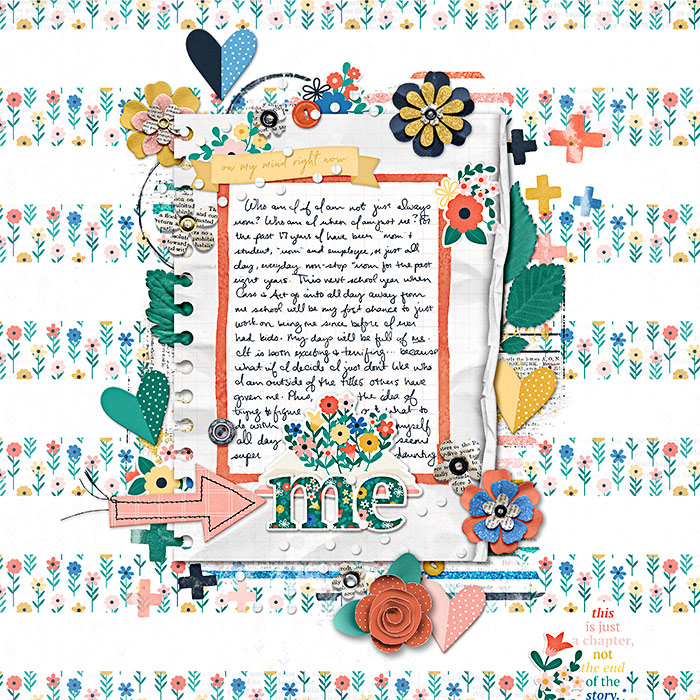 on my mind right now
Who am I if I am not just always
mom? Who am I when I am just me? For
the past 17 years I have been "mom" &
student, "mom" and employee, or just all
day, everyday non-stop "mom" for the past
eight years. This next school year when
& go into all day away from
me school will be my first chance to just
work on being me since before I ever
had kids. My days will be full of me.
It is both exciting & terrifying... because
what if I decide I just don't like who
I am outside of the titles others have
given me? Plus, the idea of
trying to figure what to
do with myself
all day
super daunting
me
this
is just
a chapter,
not
the end
of the
story.